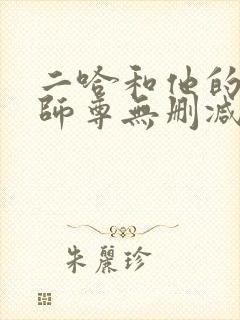 二哈和他的
師尊無刪減
朱麗珍